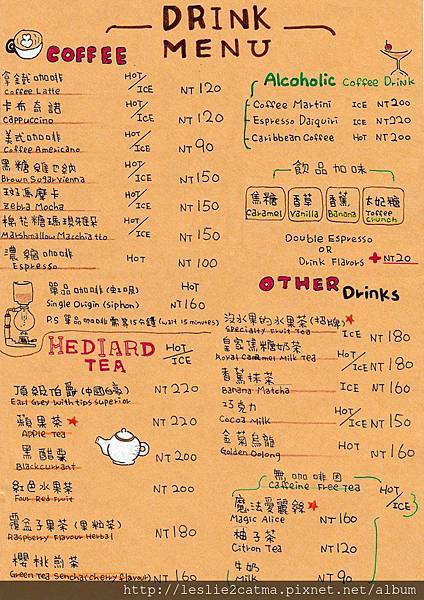 DRINK
MENU
COFFEE
拿鐵咖啡
Coffee Latte
HOT/ICE
NT 120
卡布奇諾
Cappuccino
HOT/ICE
NT 120
美式咖啡
Coffee Americano
HOT/ICE
NT 90
黑糖維也納
Brown Sugar Vienna
HOT/ICE
NT 150
斑馬摩卡
Zebra Mocha
HOT/ICE
NT 150
棉花糖瑪琪雅朵
Marshmallow Macchiatto
HOT/ICE
NT 150
濃縮咖啡
Espresso
HOT
NT 100
單品咖啡(虹吸)
Single Origin (siphon)
HOT
NT 160
P.S 單品咖啡需等15分鐘 (wait 15 minutes)
HEDIARD
TEA
HOT/ICE
頂級伯爵(中國白毫)
Earl Grey with tips superior
NT 220
蘋果茶
Apple Tea
NT 220
黑醋栗
Blackcurrant
NT 200
紅色水果茶
Four Red Fruit
NT 200
覆盆子果茶(果粒茶)
Raspberry Flavour Herbal
NT 180
櫻桃煎茶
Green Tea Sencha (cherry flavour)
NT 160
Alcoholic Coffee Drink
Coffee Martini ICE NT 200
Espresso Daiquiri ICE NT 220
Caribbean Coffee HOT NT 200
飲品加味
焦糖
Caramel
香草
Vanilla
香蕉
Banana
太妃糖
Toffee
Crunch
Double Espresso
OR
Drink Flavors +NT 20
OTHER Drinks
沒水果的水果茶(招牌)
Specialty Fruit Tea
ICE
NT 180
皇家焦糖奶茶
Royal Caramel Milk Tea
HOT/ICE
NT 180
香蕉抹茶
Banana Matcha
HOT/ICE
NT 160
巧克力
Cocoa Milk
HOT/ICE
NT 150
金菊烏龍
Golden Oolong
HOT
NT 160
無咖啡因
Caffeine Free Tea
HOT/ICE
魔法愛麗絲
Magic Alice
NT 160
柚子茶
Citron Tea
NT 120
牛奶
Milk
NT 90
http://leslie2catma.pixnet.net/album